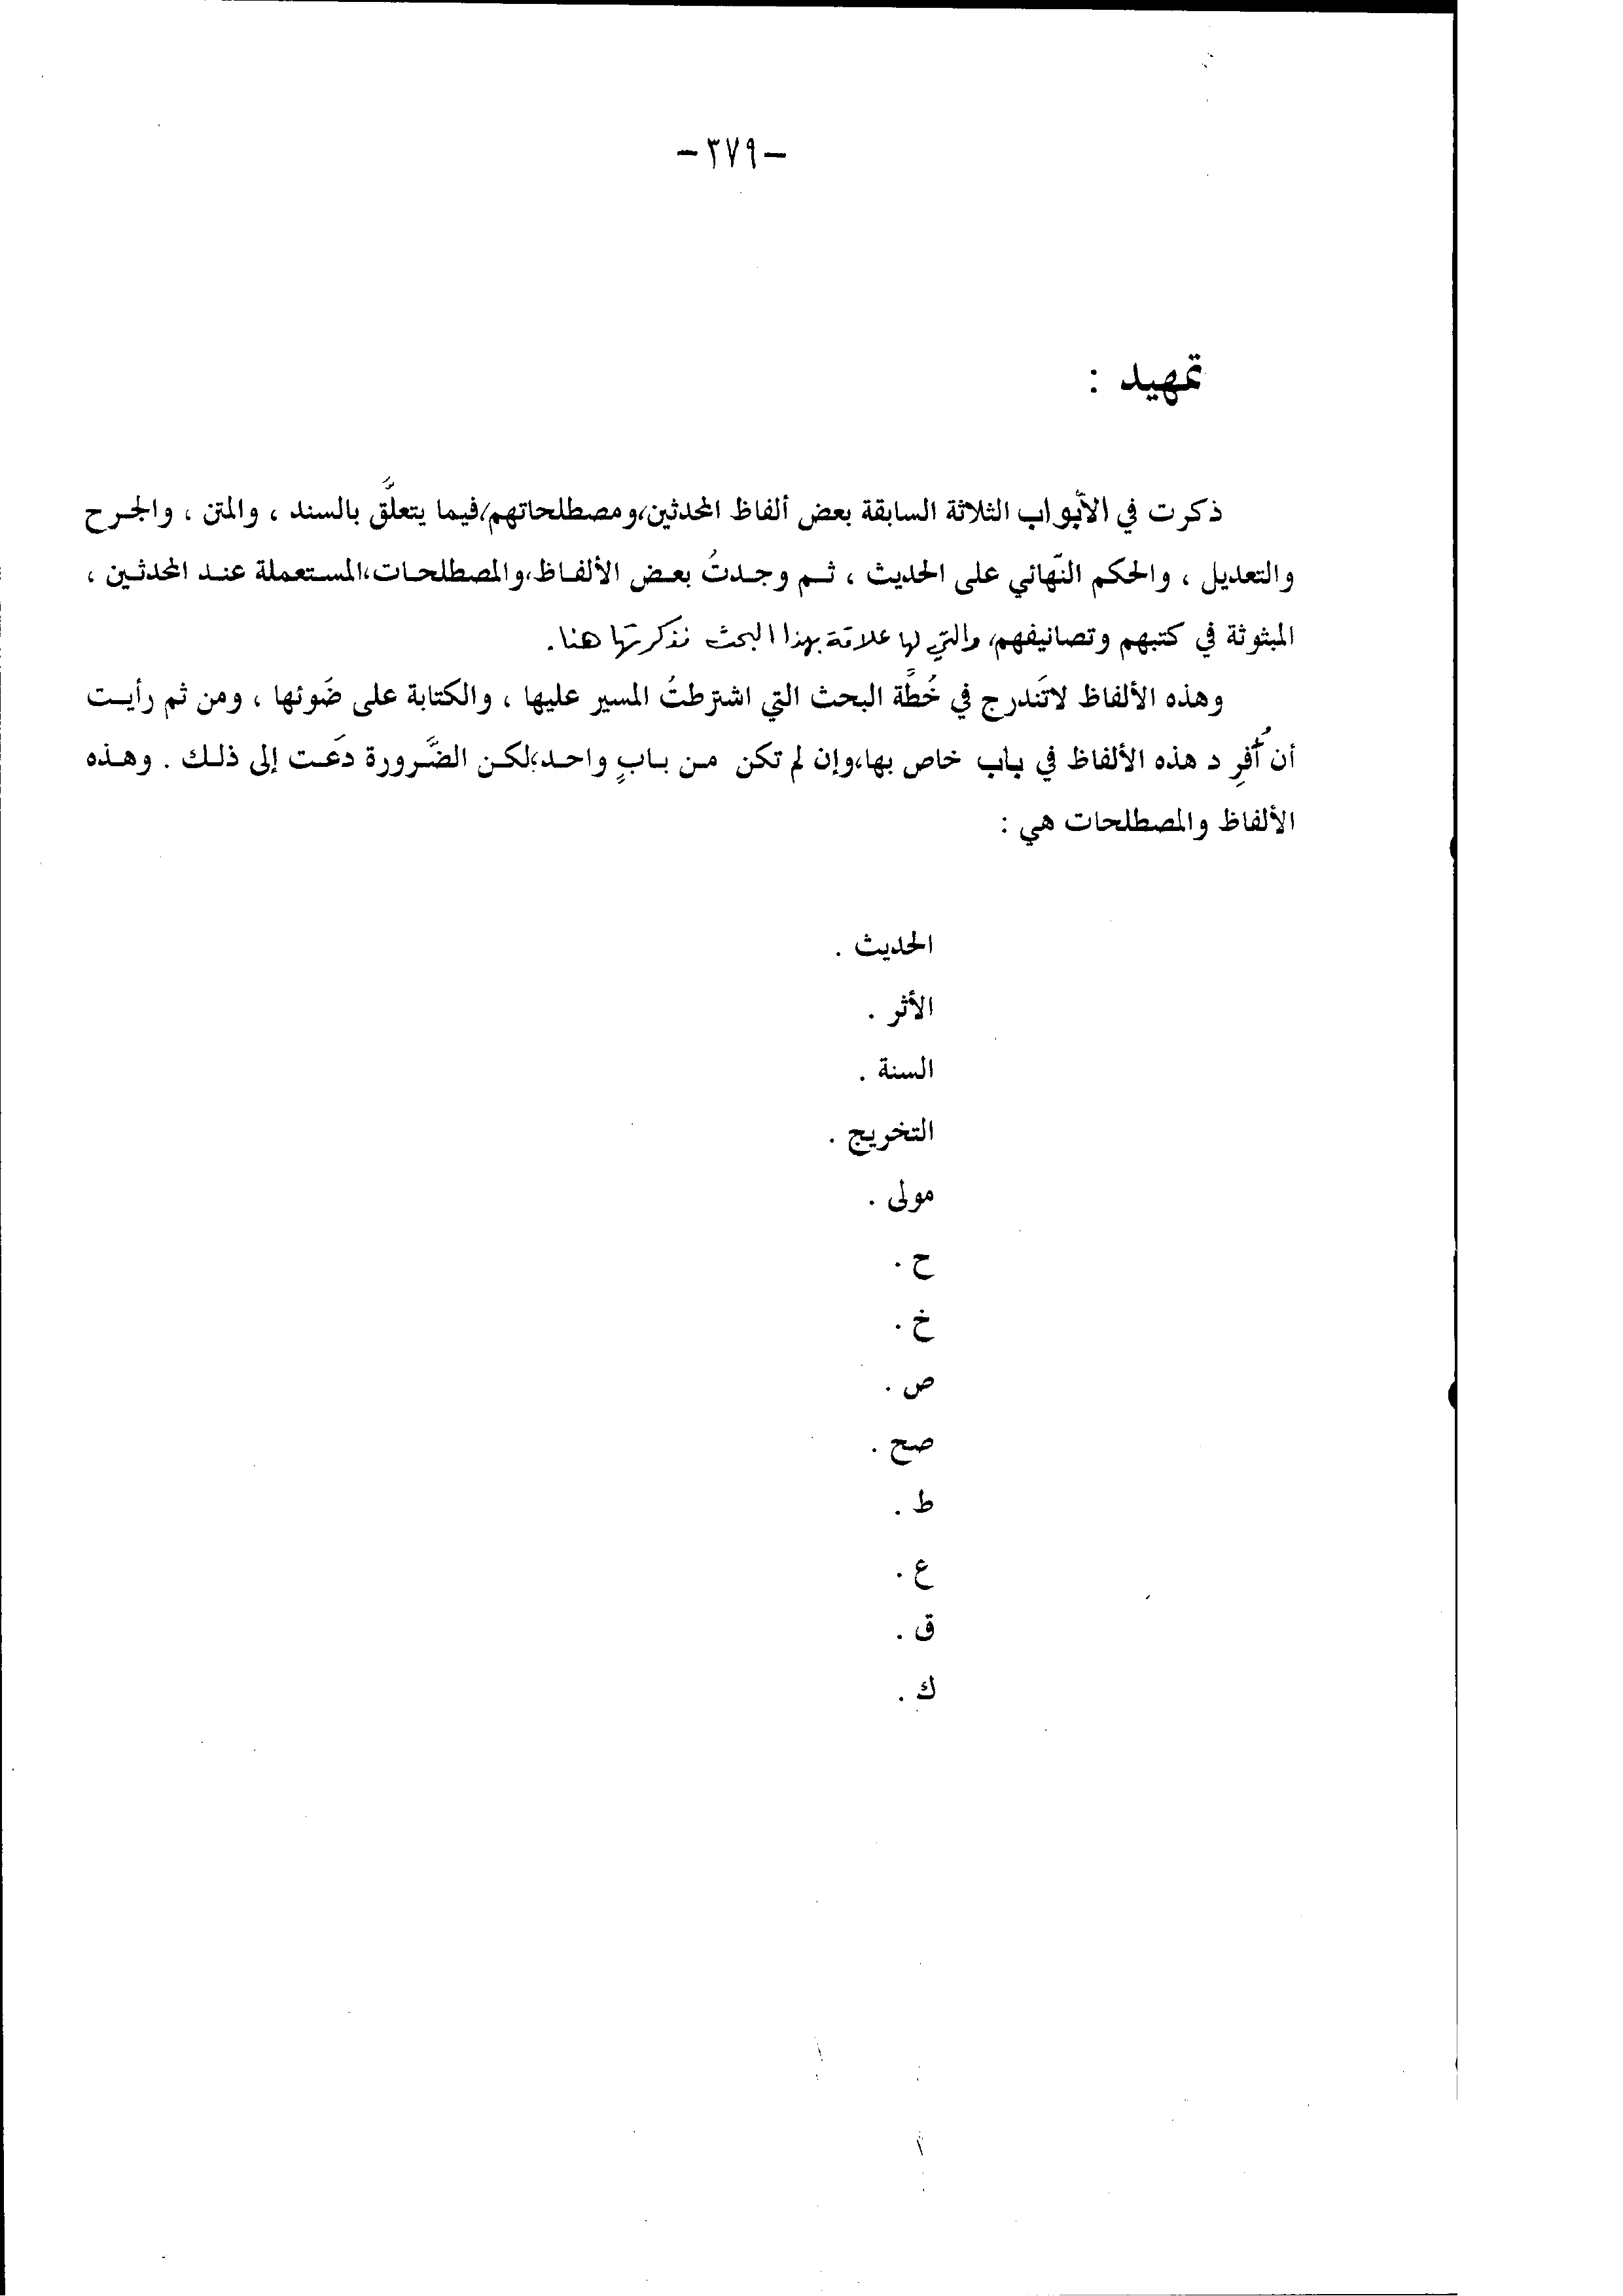 -٣٧٩-
تمهيد :
ذكرت في الأبواب الثلاثة السابقة بعض ألفاظ المحدثين،ومصطلحاتهم،فيما يتعلَّق بالسند ، والمتن ، والجرح
والتعديل ، والحكم النّهائي على الحديث ، ثم وجدتُ بعض الألفاظ،والمصطلحات،المستعملة عند المحدثين ،
المبثوثة في كتبهم وتصانيفهم، والتي لها علاقة بهذا البحث فذكرتها هنا.
وهذه الألفاظ لاتَندرج في خُطَّة البحث التي اشترطتُ المسير عليها ، والكتابة على ضَوئها ، ومن ثم رأيت
أن أُفرِد هذه الألفاظ في باب خاص بها،وإن لم تكن من بابٍ واحد؛لكن الضَّرورة دعَت إلى ذلك . وهذه
الألفاظ والمصطلحات هي :
الحديث .
الأثر .
السنة .
التخريج .
مولى .
ح .
خ .
ص .
صح .
ط .
ع .
ق .
ك .